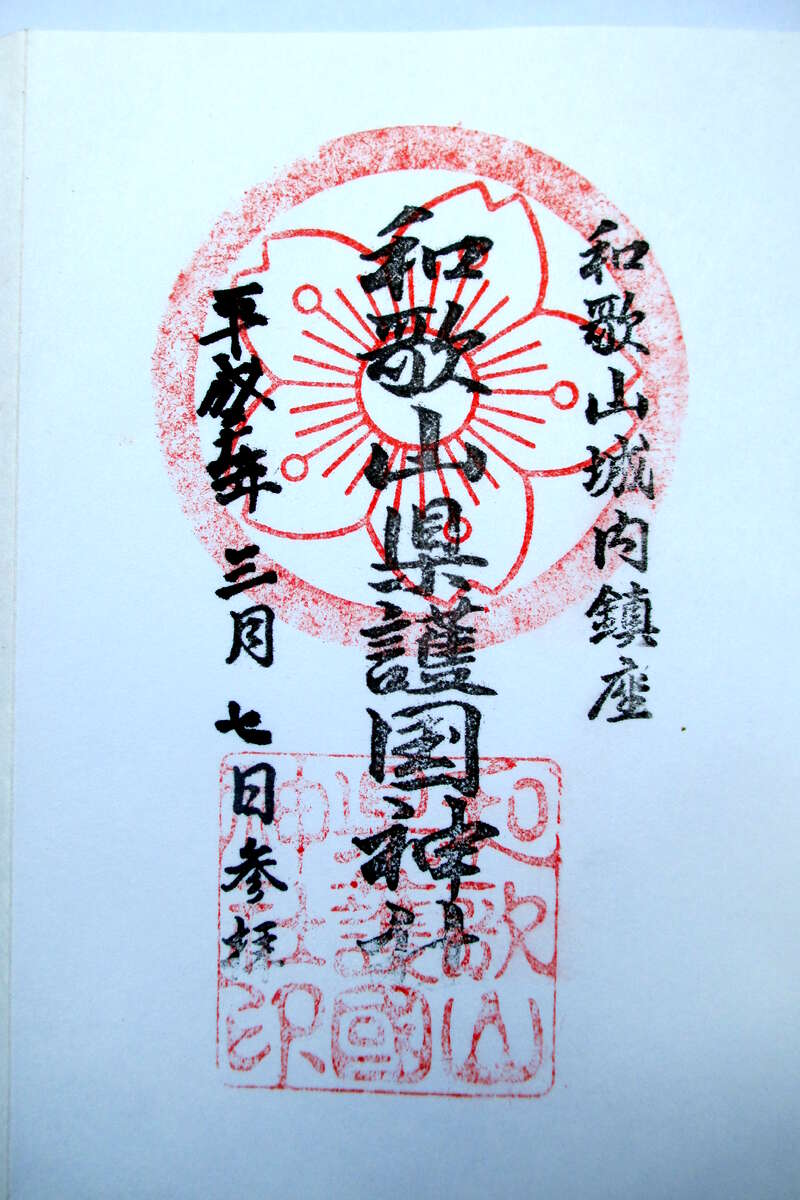 和歌山城内鎮座
和歌山県護国神社
平成年 三月 七日参拝
和歌山
県護國
神社印